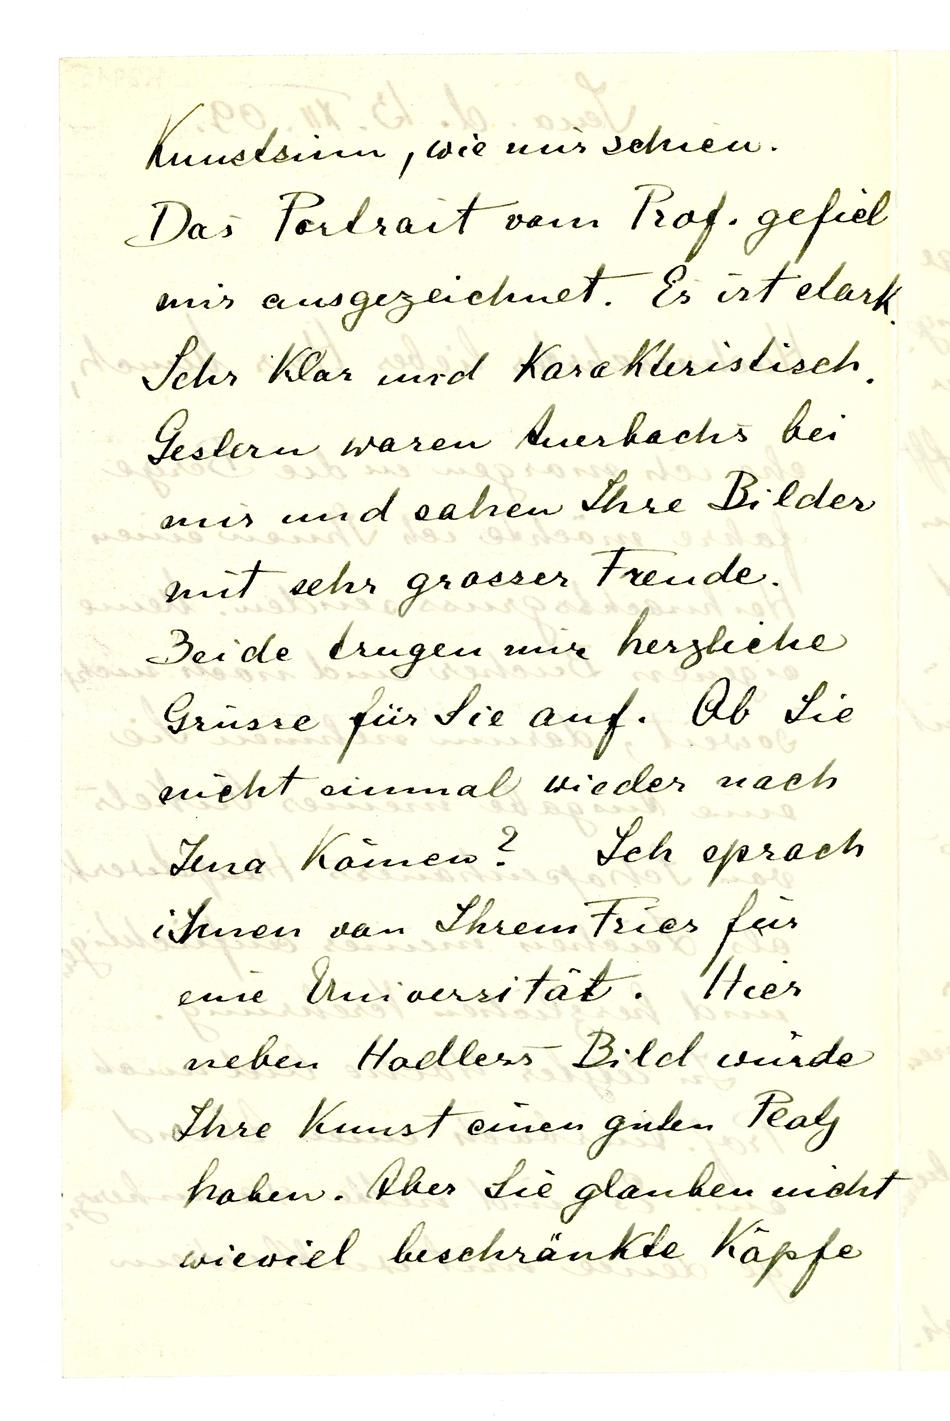 Kunstsinn, wie mir schien.
Das Portrait vom Prof. gefiel
mir ausgezeichnet. Es ist stark.
Sehr Klar und Karakteristisch.
Gestern waren Auerbachs bei
mir und sahen Ihre Bilder
mit sehr grosser Freude.
Beide trugen mir herzliche
Grüsse für Sie auf. Ob Sie
nicht einmal wieder nach
Jena Kom̄en? Ich sprach
ihnen von Ihrem Fries für
eine Universität. Hier
neben Hodlers Bild würde
Ihre Kunst einen guten Platz
haben. Aber Sie glauben nicht
wieviel beschränkte Köpfe